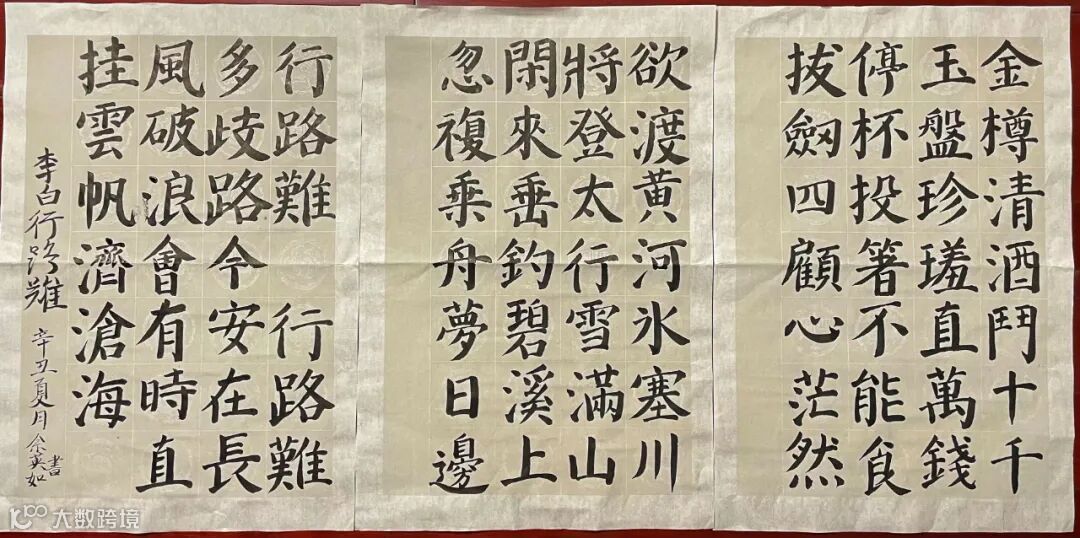 金樽清酒鬥十千
玉盤珍羞直萬錢
停杯投箸不能食
拔劒四顧心茫然
欲渡黄河氷塞川
將登太行雪滿山
閑來垂釣碧溪上
忽複乘舟夢日邊
行路難 行路難
多歧路今安在長
風破浪會有時直
挂雲帆濟滄海
李白行路難 辛丑夏月 佘英如書
大数跨境